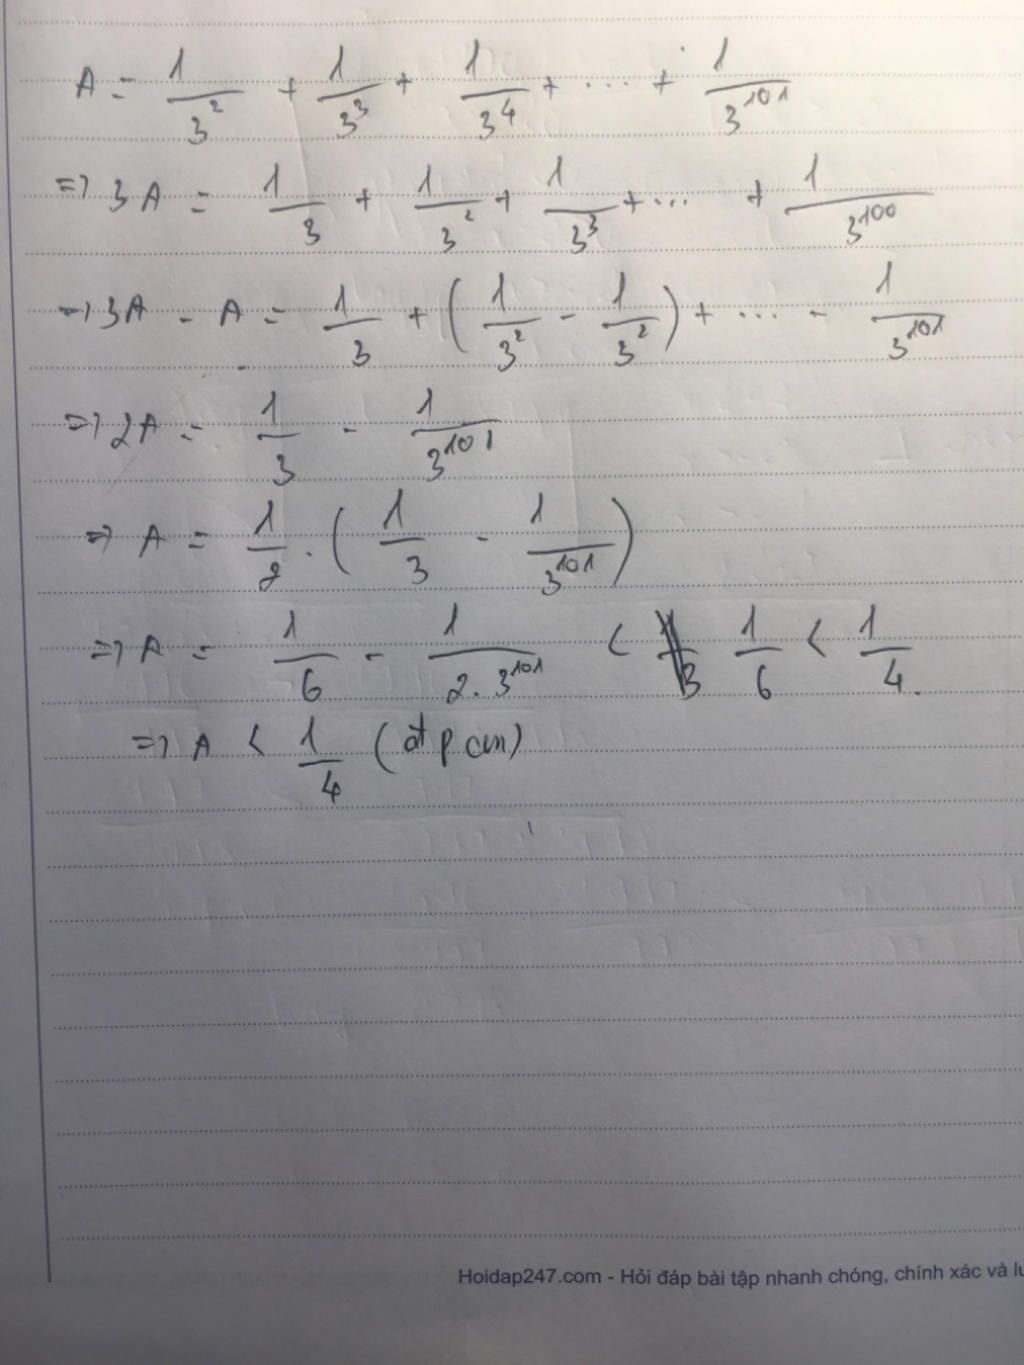 A = 1/3² + 1/3³ + 1/3⁴ + ... + 1/3¹⁰¹
=> 3A = 1/3 + 1/3² + 1/3³ + ... + 1/3¹⁰⁰
=> 3A - A = 1/3 + (1/3² - 1/3²) + ... - 1/3¹⁰¹
=> 2A = 1/3 - 1/3¹⁰¹
=> A = 1/2 . (1/3 - 1/3¹⁰¹)
=> A = 1/6 - 1/2.3¹⁰¹ < 1/6 < 1/4.
=> A < 1/4 (đtpcm)
Hoidap247.com - Hỏi đáp bài tập nhanh chóng, chính xác và